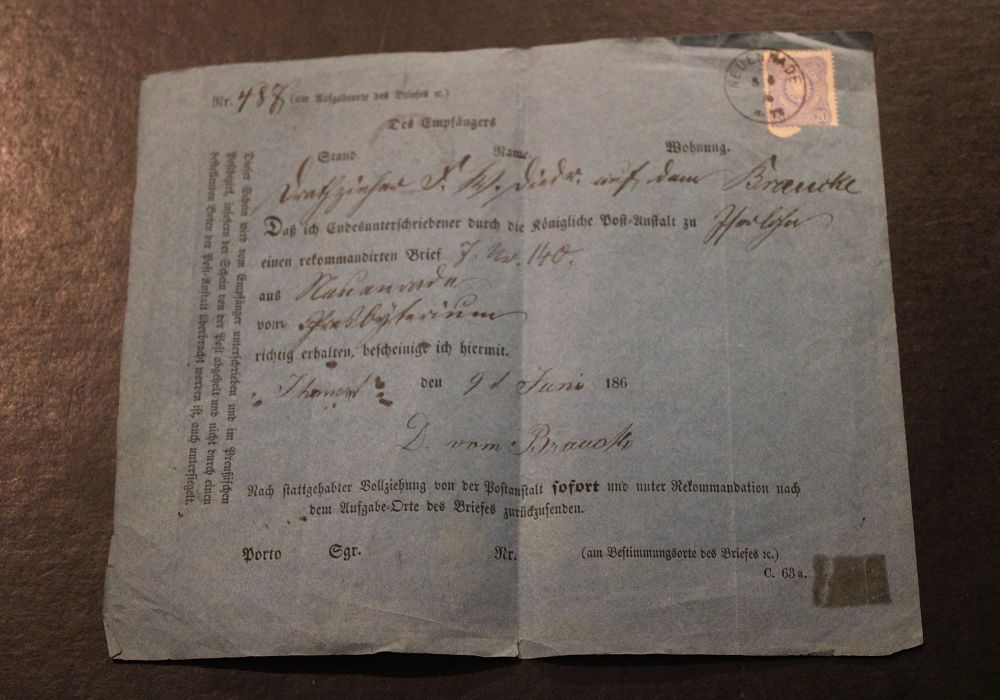 NEUENRADE
Nr. 487 (am Aufgabeorte des Briefes ꝛc.)
Des Empfängers
Stand. Name. Wohnung.
Drathzieher F. W. Diedr. auf dem Braucke
Daß ich Endesunterschriebener durch die Königliche Post-Anstalt zu Iserlohn
einen rekommandirten Brief No. 140.
aus Neuenrade
vom Presbyterium
richtig erhalten, bescheinige ich hiermit.
den 9t Juni 186
D. vom Braucke
Nach stattgehabter Vollziehung von der Postanstalt sofort und unter Rekommandation nach
dem Aufgabe-Orte des Briefes zurückzusenden.
Porto Sgr. Nr. (am Bestimmungsorte des Briefes ꝛc.)
C. 63a.
Dieser Schein wird vom Empfänger unterschrieben und im Preußischen
Postbezirk, insofern der Schein von der Post abgeholt und nicht durch einen
bestellenden Boten der Post-Anstalt überbracht worden ist, auch untersiegelt.